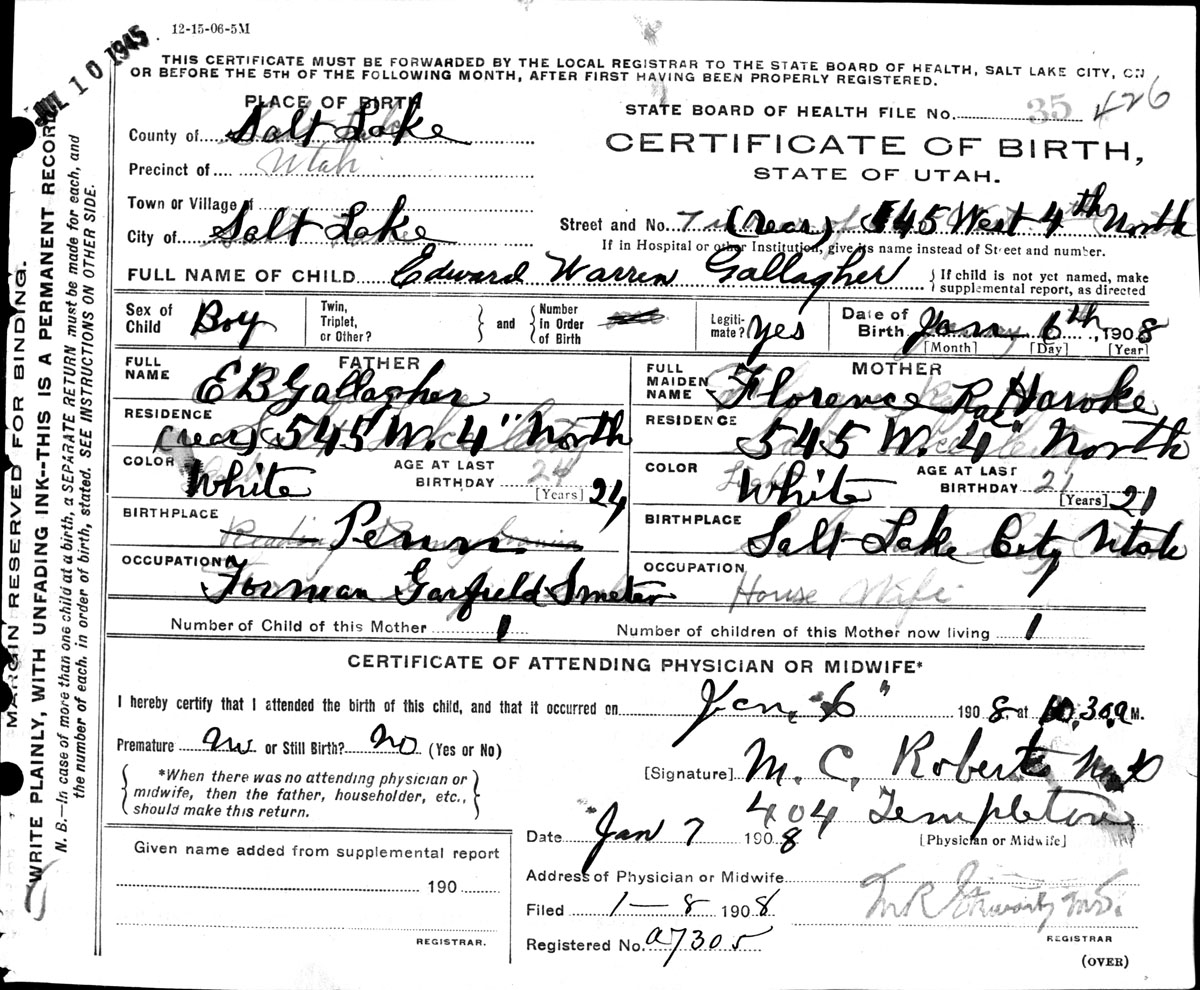 12-15-06-5M
JUL 10 1945
THIS CERTIFICATE MUST BE FORWARDED BY THE LOCAL REGISTRAR TO THE STATE BOARD OF HEALTH, SALT LAKE CITY, ON
OR BEFORE THE 5TH OF THE FOLLOWING MONTH, AFTER FIRST HAVING BEEN PROPERLY REGISTERED.
PLACE OF BIRTH
County of Salt Lake
Precinct of Utah
Town or Village of
City of Salt Lake
STATE BOARD OF HEALTH FILE No. 35 426
CERTIFICATE OF BIRTH,
STATE OF UTAH.
Street and No. (rear) 545 West 4th North
If in Hospital or other Institution, give its name instead of Street and number.
FULL NAME OF CHILD Edward Warren Gallagher
If child is not yet named, make
supplemental report, as directed
Sex of Child Boy
Twin, Triplet, or Other?
and
Number in Order of Birth
Legitimate? yes
Date of Birth Jan 6th, 1908
[Month] [Day] [Year]
FATHER
FULL NAME E B Gallagher
RESIDENCE (rear) 545 W. 4" North
COLOR White
AGE AT LAST BIRTHDAY 24 [Years] 24
BIRTHPLACE Penn.
OCCUPATION Forman Garfield Smeter
MOTHER
FULL MAIDEN NAME Florence Rae
RESIDENCE 545 W. 4" North
COLOR White
AGE AT LAST BIRTHDAY 21 [Years] 21
BIRTHPLACE Salt Lake City Utah
OCCUPATION House Wife
Number of Child of this Mother 1
Number of children of this Mother now living 1
CERTIFICATE OF ATTENDING PHYSICIAN OR MIDWIFE*
I hereby certify that I attended the birth of this child, and that it occurred on Jan, 6" 1908 at 10.30 a M.
Premature no or Still Birth? no (Yes or No)
*When there was no attending physician or
midwife, then the father, householder, etc.,
should make this return.
[Signature] M. C. Roberts
404 Templeton
[Physician or Midwife]
Date Jan 7 1908
Given name added from supplemental report
190
REGISTRAR.
Address of Physician or Midwife
Filed 1-8 1908
Registered No. a7305
REGISTRAR
(OVER)
MARGIN RESERVED FOR BINDING.
WRITE PLAINLY, WITH UNFADING INK--THIS IS A PERMANENT RECORD
N. B.—In case of more than one child at a birth, a SEPARATE RETURN must be made for each, and
the number of each, in order of birth, stated. SEE INSTRUCTIONS ON OTHER SIDE.